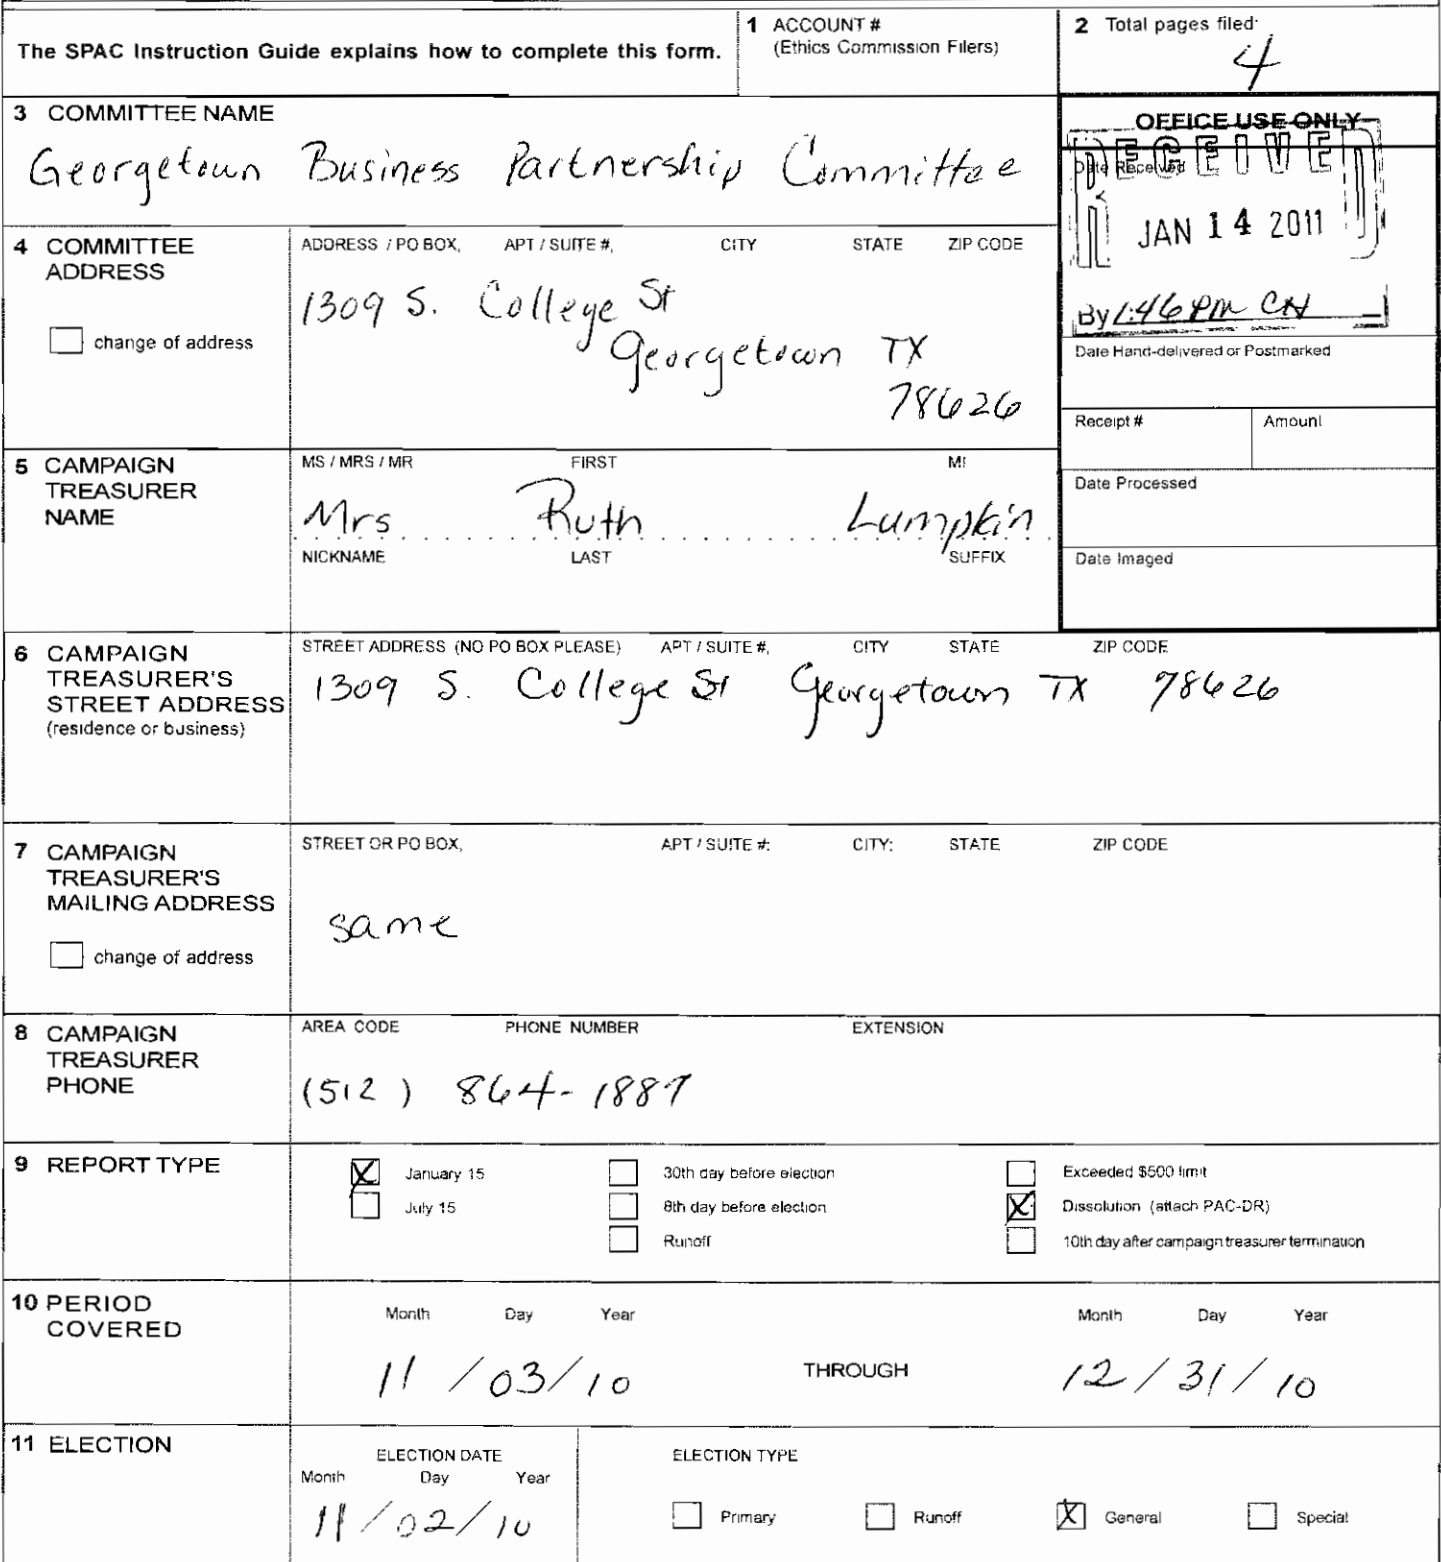 The SPAC Instruction Guide explains how to complete this form.
1 ACCOUNT #
(Ethics Commission Filers)
2 Total pages filed:
4
3 COMMITTEE NAME
Georgetown Business Partnership Committee
OFFICE USE ONLY
Date Received
RECEIVED
JAN 14 2011
By 1:46 PM CH
Date Hand-delivered or Postmarked
Receipt #
Amount
Date Processed
Date Imaged
4 COMMITTEE
ADDRESS
change of address
ADDRESS / PO BOX, APT / SUITE #, CITY STATE ZIP CODE
1309 S. College St
Georgetown TX
78626
5 CAMPAIGN
TREASURER
NAME
MS / MRS / MR FIRST MI
Mrs Ruth Lumpkin
NICKNAME LAST SUFFIX
6 CAMPAIGN
TREASURER'S
STREET ADDRESS
(residence or business)
STREET ADDRESS (NO PO BOX PLEASE) APT / SUITE #, CITY STATE ZIP CODE
1309 S. College St Georgetown TX 78626
7 CAMPAIGN
TREASURER'S
MAILING ADDRESS
change of address
STREET OR PO BOX, APT / SUITE #: CITY: STATE ZIP CODE
same
8 CAMPAIGN
TREASURER
PHONE
AREA CODE PHONE NUMBER EXTENSION
(512) 864-1887
9 REPORT TYPE
January 15
July 15
30th day before election
8th day before election
Runoff
Exceeded $500 limit
Dissolution (attach PAC-DR)
10th day after campaign treasurer termination
10 PERIOD
COVERED
Month Day Year
11/03/10
THROUGH
Month Day Year
12/31/10
11 ELECTION
ELECTION DATE
Month Day Year
11/02/10
ELECTION TYPE
Primary Runoff General Special